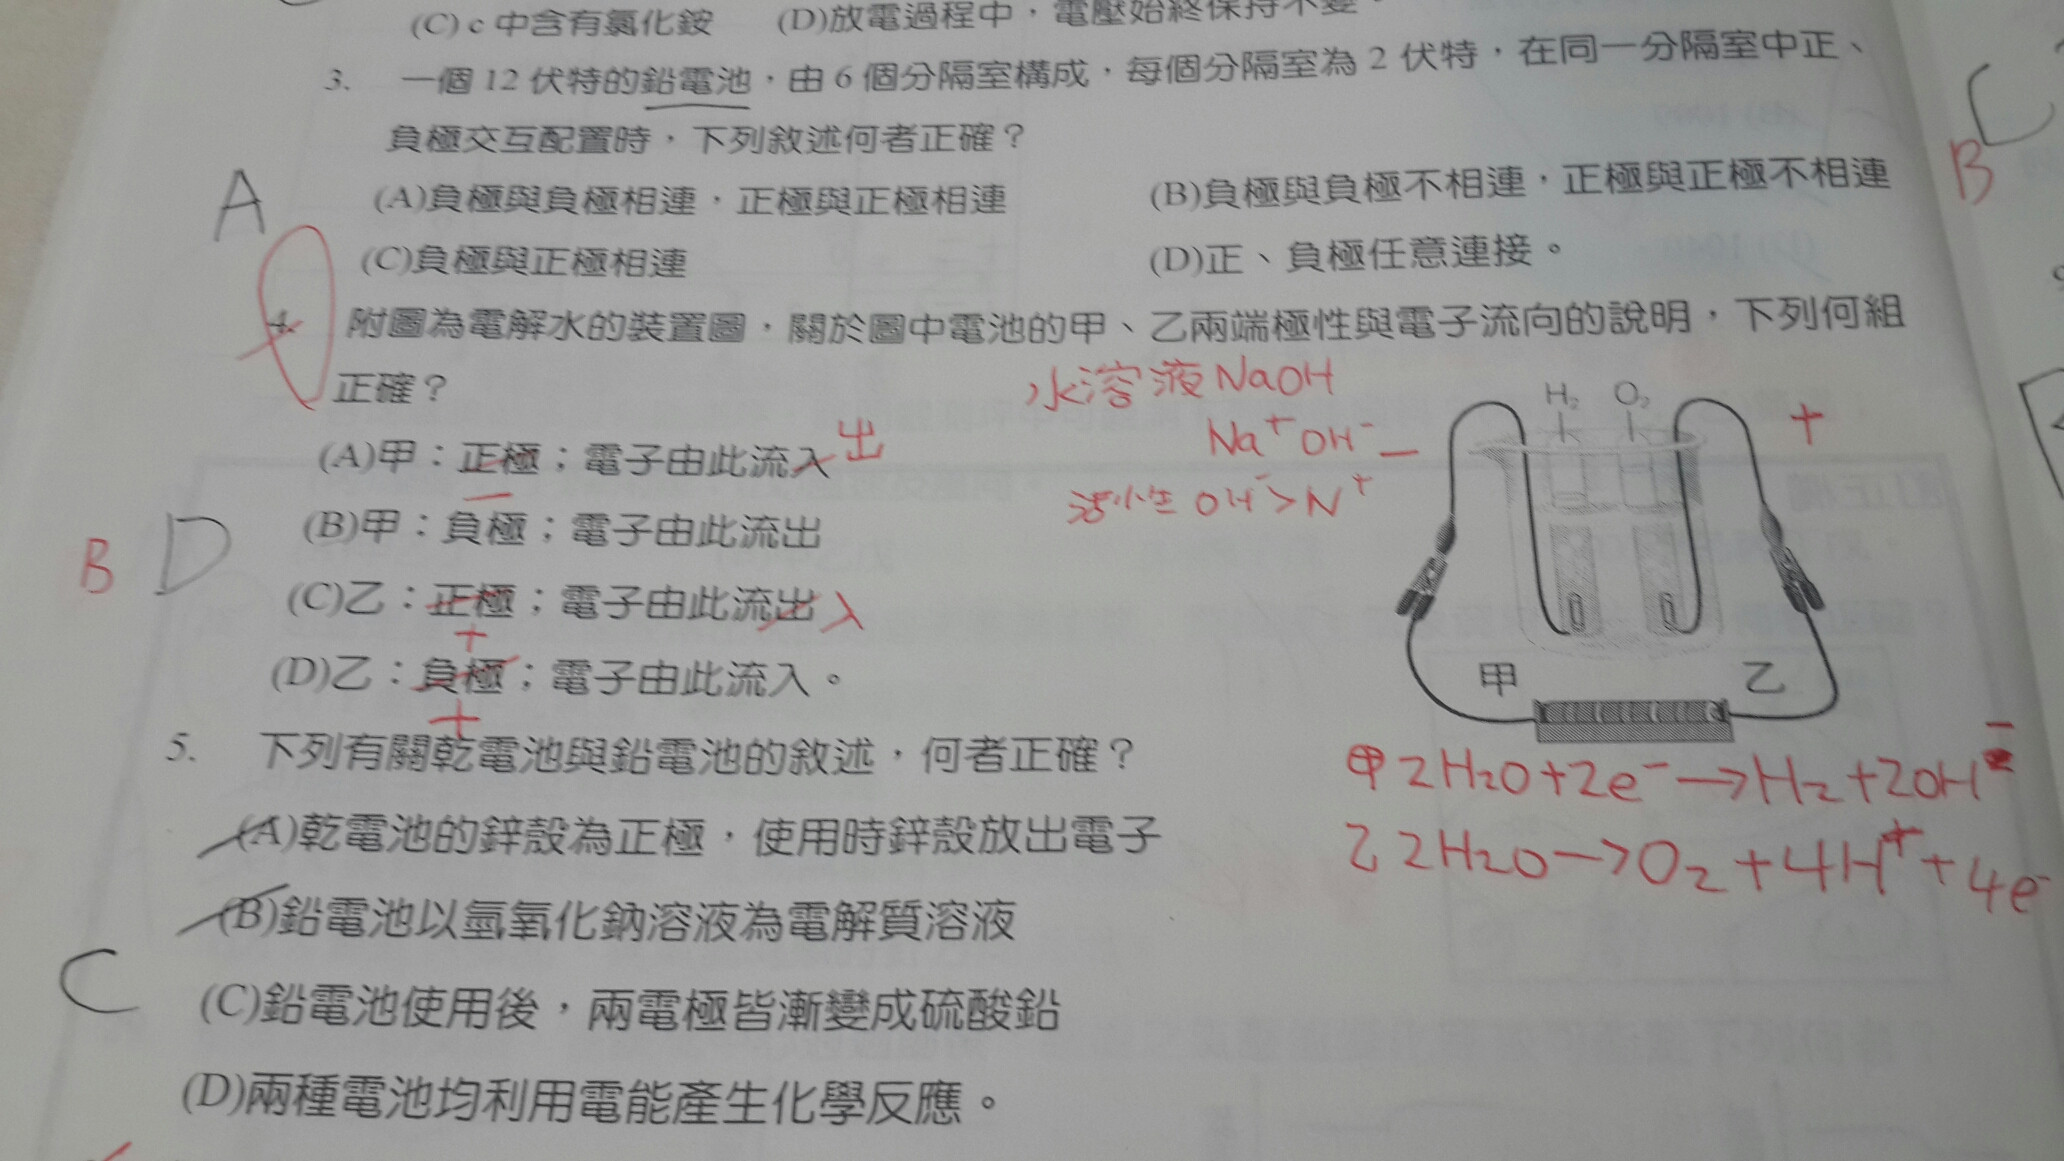 (C) c 中含有氯化銨 (D)放電過程中，電壓始終保持不變。
3. 一個 12 伏特的鉛電池，由 6 個分隔室構成，每個分隔室為 2 伏特，在同一分隔室中正、
負極交互配置時，下列敘述何者正確？
A
(A)負極與負極相連，正極與正極相連 (B)負極與負極不相連，正極與正極不相連
C
B
(C)負極與正極相連 (D)正、負極任意連接。
4. 附圖為電解水的裝置圖，關於圖中電池的甲、乙兩端極性與電子流向的說明，下列何組
正確？
水溶液 NaOH
Na⁺ OH⁻
活性 OH⁻ > N⁺
H₂ O₂
− +
(A)甲：正極；電子由此流入 出
−
(B)甲：負極；電子由此流出
B D
(C)乙：正極；電子由此流出 入
+
(D)乙：負極；電子由此流入。
+
甲 乙
甲 2H₂O+2e⁻→H₂+2OH⁻
乙 2H₂O→O₂+4H⁺+4e⁻
5. 下列有關乾電池與鉛電池的敘述，何者正確？
(A)乾電池的鋅殼為正極，使用時鋅殼放出電子
(B)鉛電池以氫氧化鈉溶液為電解質溶液
C
(C)鉛電池使用後，兩電極皆漸變成硫酸鉛
(D)兩種電池均利用電能產生化學反應。